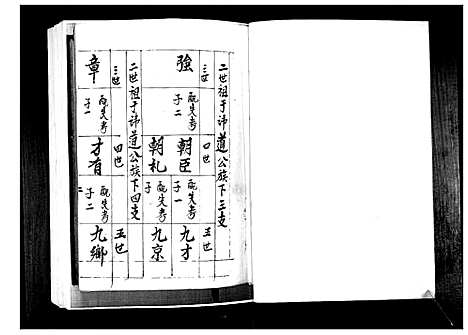 二世祖于沛道公族下三支
三世
強
配失考
子二
四世
朝臣
朝札
配失考
子一
子
五世
九才
九京
二世祖于沛道公族下四支
三世
章
配失考
子一
四世
才有
配失考
子二
五世
九鄉